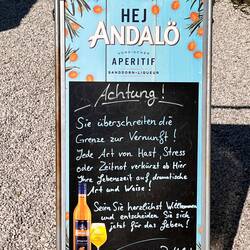 HEJ
ANDALÖ
NORDISCHER
APERITIF
SANDDORN-LIQUEUR
Achtung!
Sie überschreiten die
Grenze zur Vernunft!
Jede Art von Hast, Stress
oder Zeitnot verkürzt ab Hier
Ihre Lebenszeit auf dramatische
Art und Weise!
Seien Sie herzlichst Willkommen
und entscheiden Sie sich
jetzt für das Leben!